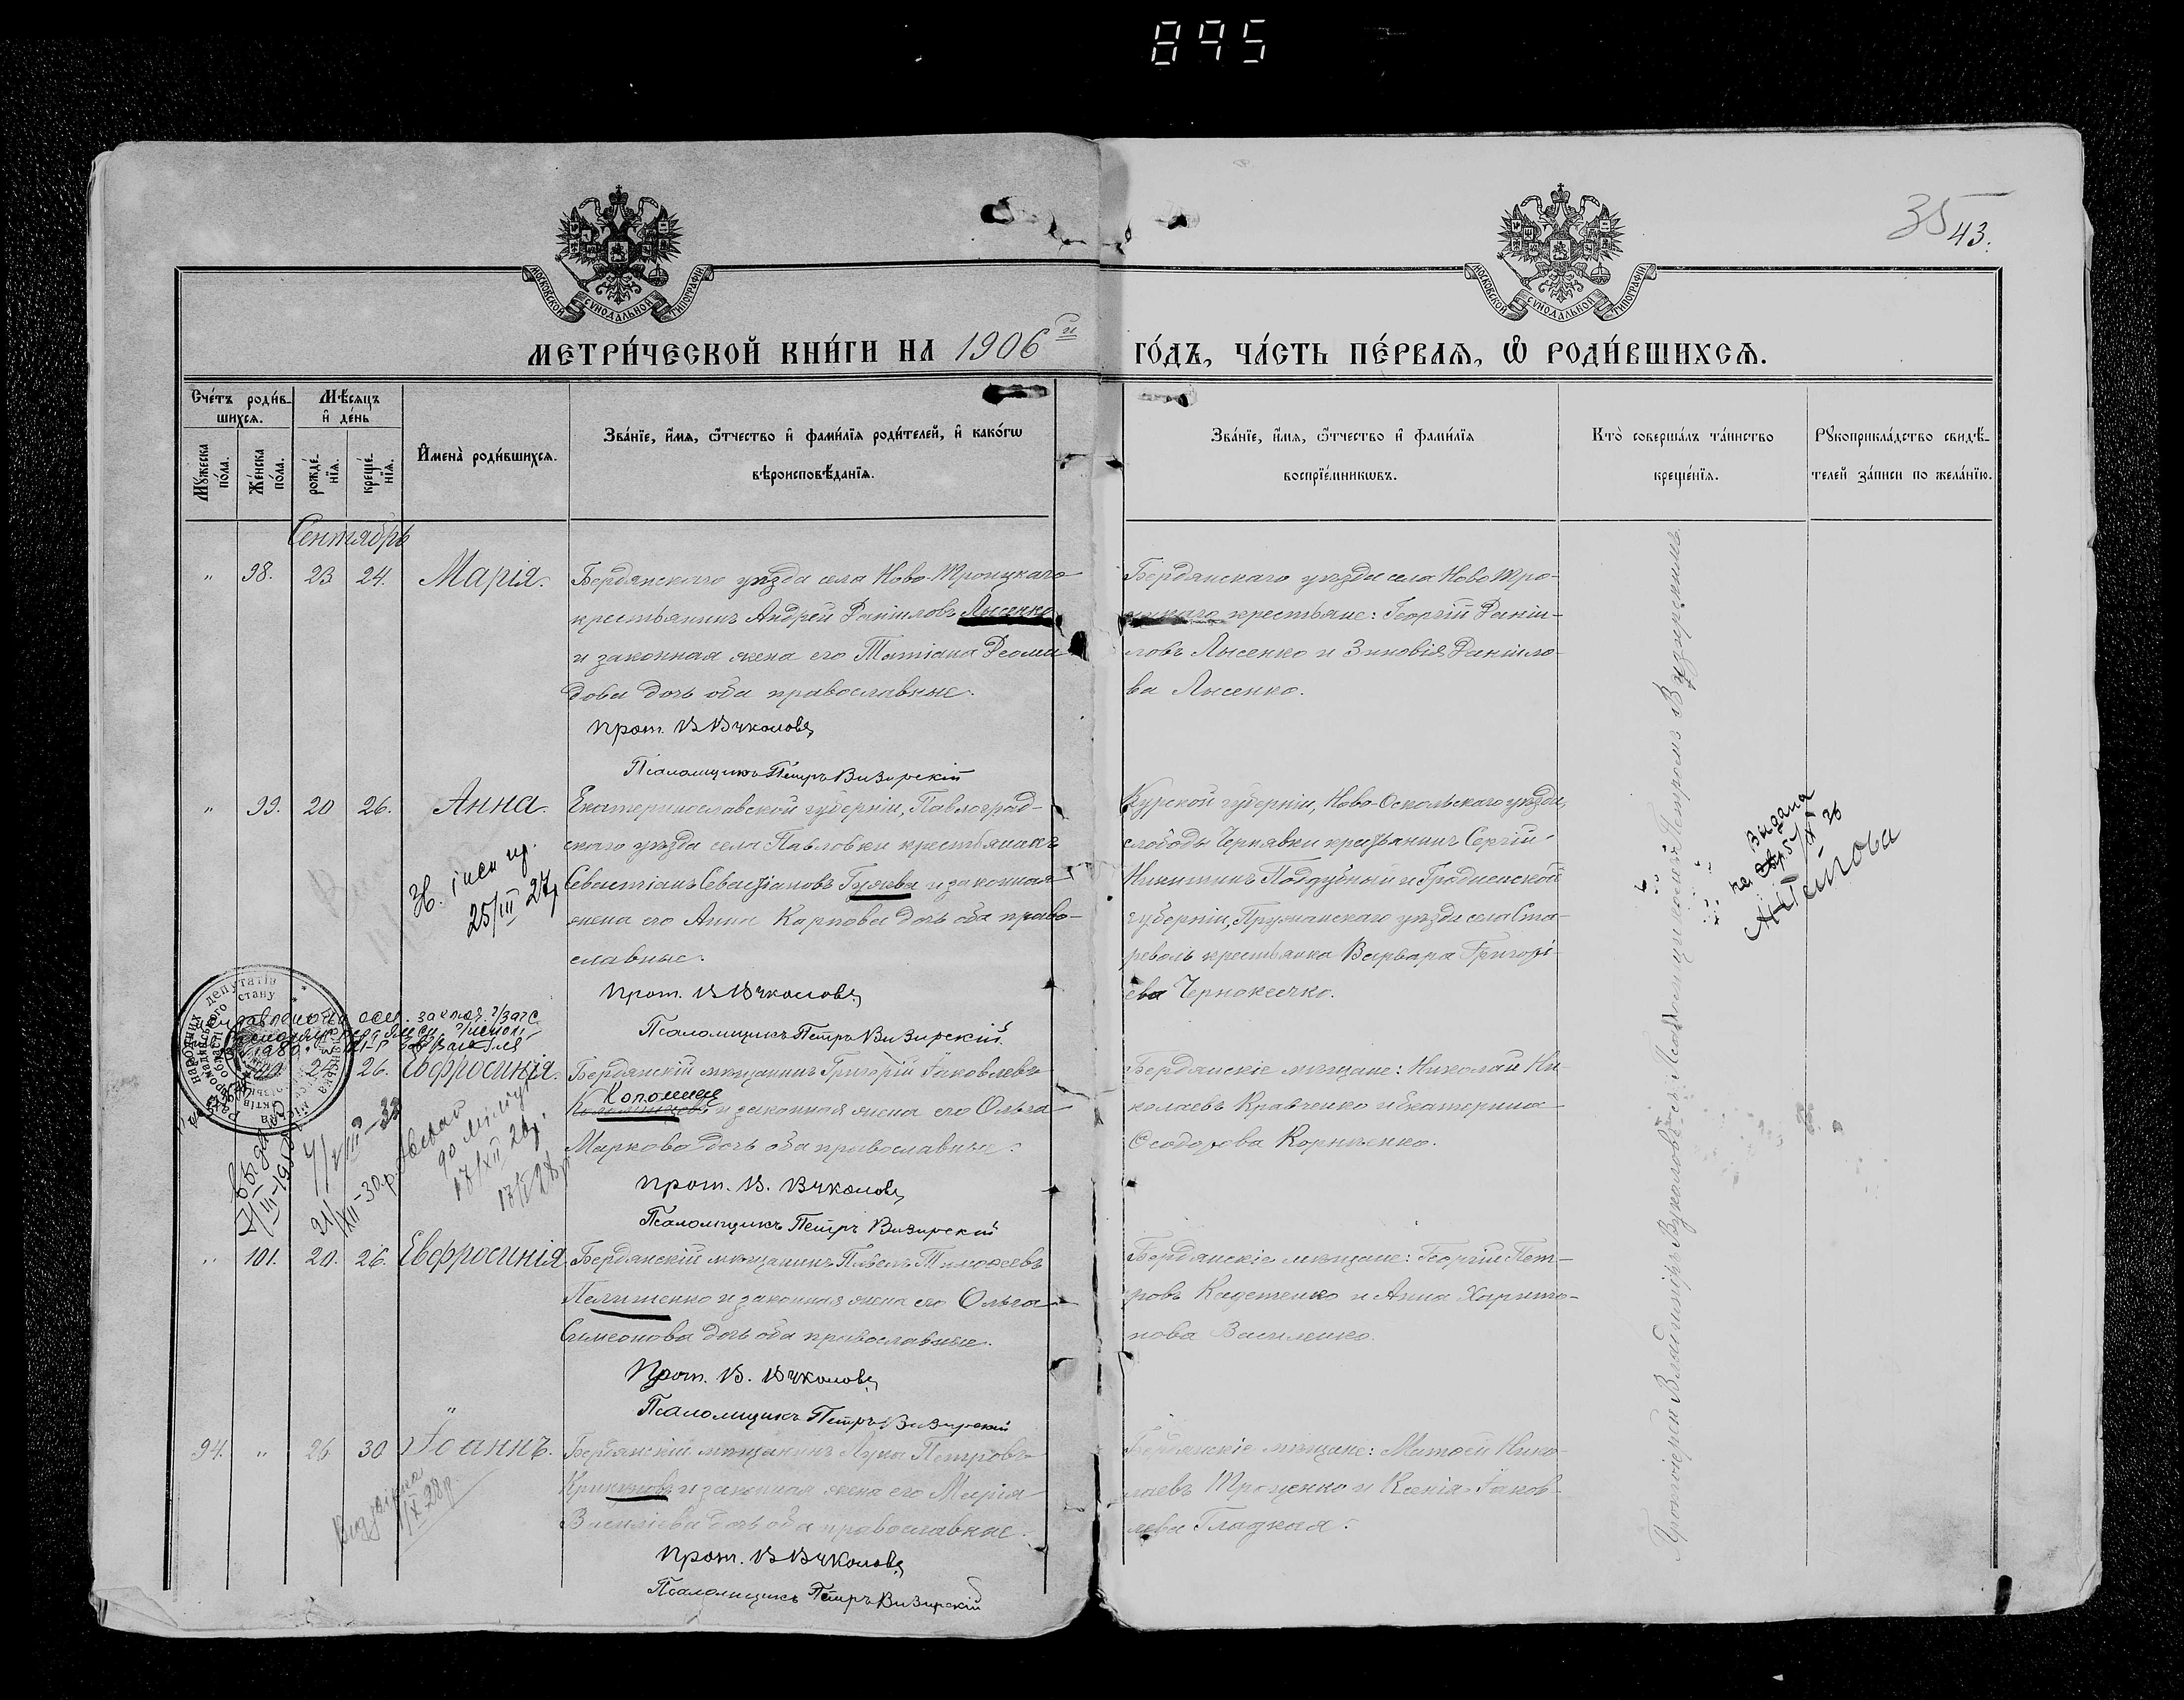 895
35 43.
МОСКОВСКОЙ СѴНОДАЛЬНОЙ ТИПОГРАФІИ
МОСКОВСКОЙ СѴНОДАЛЬНОЙ ТИПОГРАФІИ
МЕТРИ́ЧЕСКОЙ КНИ́ГИ НА 1906й ГО́ДЪ, ЧА́СТЬ ПЕ́РВАѦ, Ѽ РОДИ́ВШИХСѦ.
Сче́тъ роди́в-
шихсѧ.
Мѣ́сѧцъ
и҆ де́нь
Мꙋ́жеска по́ла.
Же́нска по́ла.
рожде́-
нїѧ.
креще́-
нїѧ.
И҆мена̀ роди́вшихсѧ.
Зва́нїе, и҆́мѧ, ѻ҆́тчество и҆ фами́лїѧ роди́телей, и҆ како́гѡ
вѣроисповѣ́данїѧ.
Зва́нїе, и҆́мѧ, ѻ҆́тчество и҆ фами́лїѧ
воспрїе́мникѡвъ.
Кто̀ соверша́лъ та́инство
креще́нїѧ.
Рꙋкоприкла́дство свидѣ́-
телей за́писи по жела́нїю.
Сентябрь
" 98. 23 24. Марія.
Бердянскаго уѣзда села Ново-Троицкаго
крестьянинъ Андрей Даніиловъ Лысенко
и законная жена его Татіана
дова дочь оба православные.
Прот. В Вуколовъ
Псаломщикъ Петръ Визирскій
Бердянскаго уѣзда села Ново Тро-
ицкаго крестьяне: Георгій Даніи-
ловъ Лысенко и Зиновія Даніило-
ва Лысенко.
" 99. 20 26. Анна.
Екатеринославской губерніи, Павлоград-
скаго уѣзда села Павловки крестьянинъ
Севастіанъ Севастіановъ и законная
жена его Анна Карпова дочь оба право-
славные.
Прот. В Вуколовъ
Псаломщикъ Петръ Визирскій
25/III 27р
Курской губерніи, Ново-Оскольскаго уѣзда,
слободы Чернявки крестьянинъ Сергій
Никитинъ Поддубный и Гродненской
губерніи, Пружанскаго уѣзда села Ста-
револь крестьянка Варвара Григорі-
ева
Видана
5/IX 26
24 26. Евфросинія.
Бердянскій мѣщанинъ Григорій Іаковлевъ
Коломиец
и законная жена его Ольга
Маркова дочь оба православные.
Прот. В. Вуколовъ
Псаломщикъ Петръ Визирскій
Бердянскіе мѣщане: Николай Ни-
колаевъ Кравченко и Екатерина
Ѳеодорова Корниенко.
" 101. 20. 26. Евфросинія.
Бердянскій мѣщанинъ Павелъ Тимоѳеевъ
и законная жена его Ольга
Симеонова дочь оба православные.
Прот. В. Вуколовъ
Псаломщикъ Петръ Визирскій
Бердянскіе мѣщане: Георгій Пет-
ровъ и Анна Харито-
нова Василенко.
94. " 26 30 Іоаннъ.
Бердянскій мѣщанинъ Лука Петровъ
и законная жена его Марія
Василіева дочь оба православные.
Прот. В Вуколовъ
Псаломщикъ Петръ Визирскій
Бердянскіе мѣщане: Матѳей Нико-
лаевъ Троценко и Ксенія Іаков-
лева Гладкая.
Протоіерей Владиміръ Вуколовъ съ Псаломщикомъ Петромъ Визирскимъ.